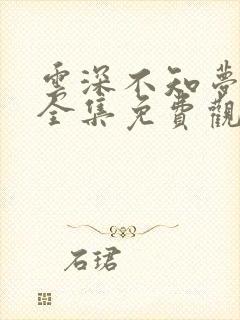 雲深不知夢
全集免費觀
石珺